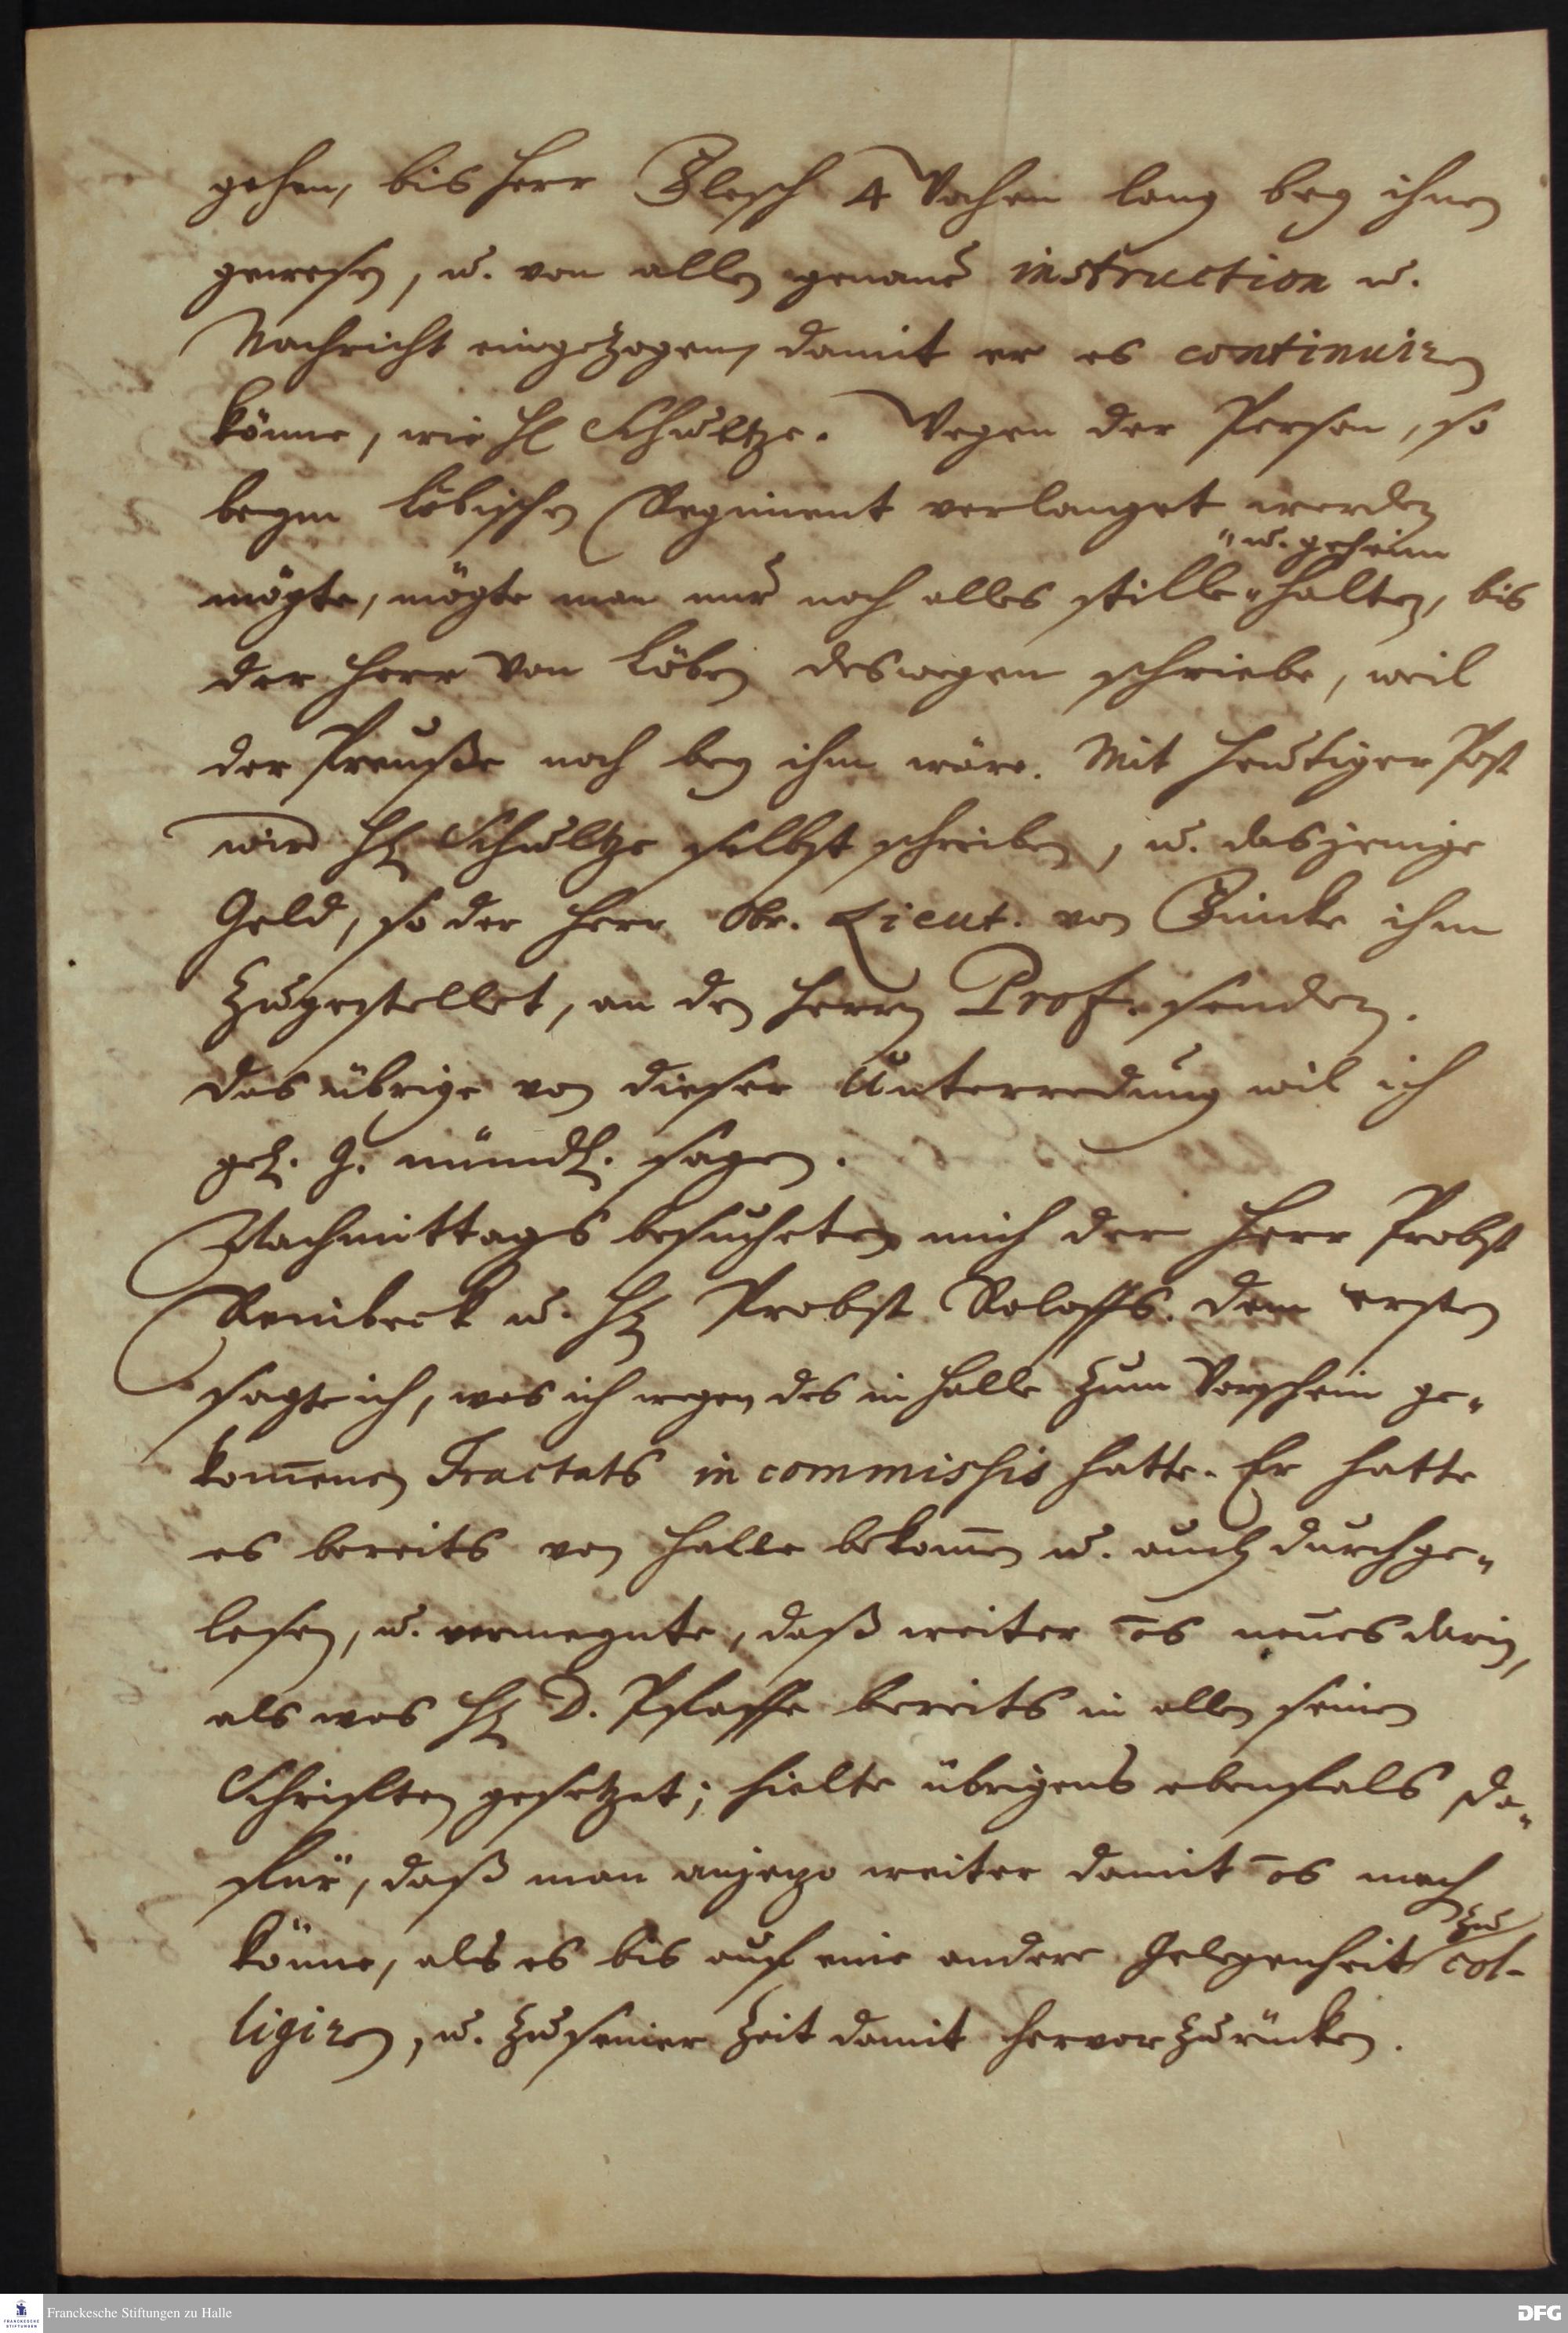 gehen, bis Herr Blesch 4 Wochen lang bey ihnen
gewesen, u. von allen genaue instruction u.
Nachricht eingezogen, damit er es continuiren
könne, wie H. Schultze. Wegen der Person, so
beym Löbischen Regiment verlanget werden
" u. geheim
mögte, mögte man nur noch alles stille " halten, bis
der Herr von Löben deswegen schriebe, weil
der Preuße noch bey ihm wäre. Mit heutiger Post
wird H. Schultze selbst schreiben, u. dasjenige
Geld, so der Herr Obr. Lieut. von Finck ihm
zugestellet, an den Herrn Prof. senden.
das übrige von dieser Unterredung wil ich
gel. G. mündl. sagen.
Nachmittags besucheten mich der Herr Probst
Reinbeck u. H. Probst Roloffs. dem ersten
sagte ich, was ich wegen des in Halle zum Vorschein ge-
kom̄enen Tractats in commissis hatte. Er hatte
es bereits von Halle bekom̄en u. auch durchge-
lesen, u. vermeynte, daß weiter o̅s neues darin,
als was H. D. Pfaffe bereits in allen seinen
Schriften gesetzet; hielte übrigens ebenfals da-
für, daß man anjezo weiter damit o̅s machen
könne, als es bis auf eine andere Gelegenheit zu col-
ligiren, u. zu seiner Zeit damit hervorzurücken.
Franckesche Stiftungen zu Halle
FRANCKESCHE
STIFTUNGEN
DFG